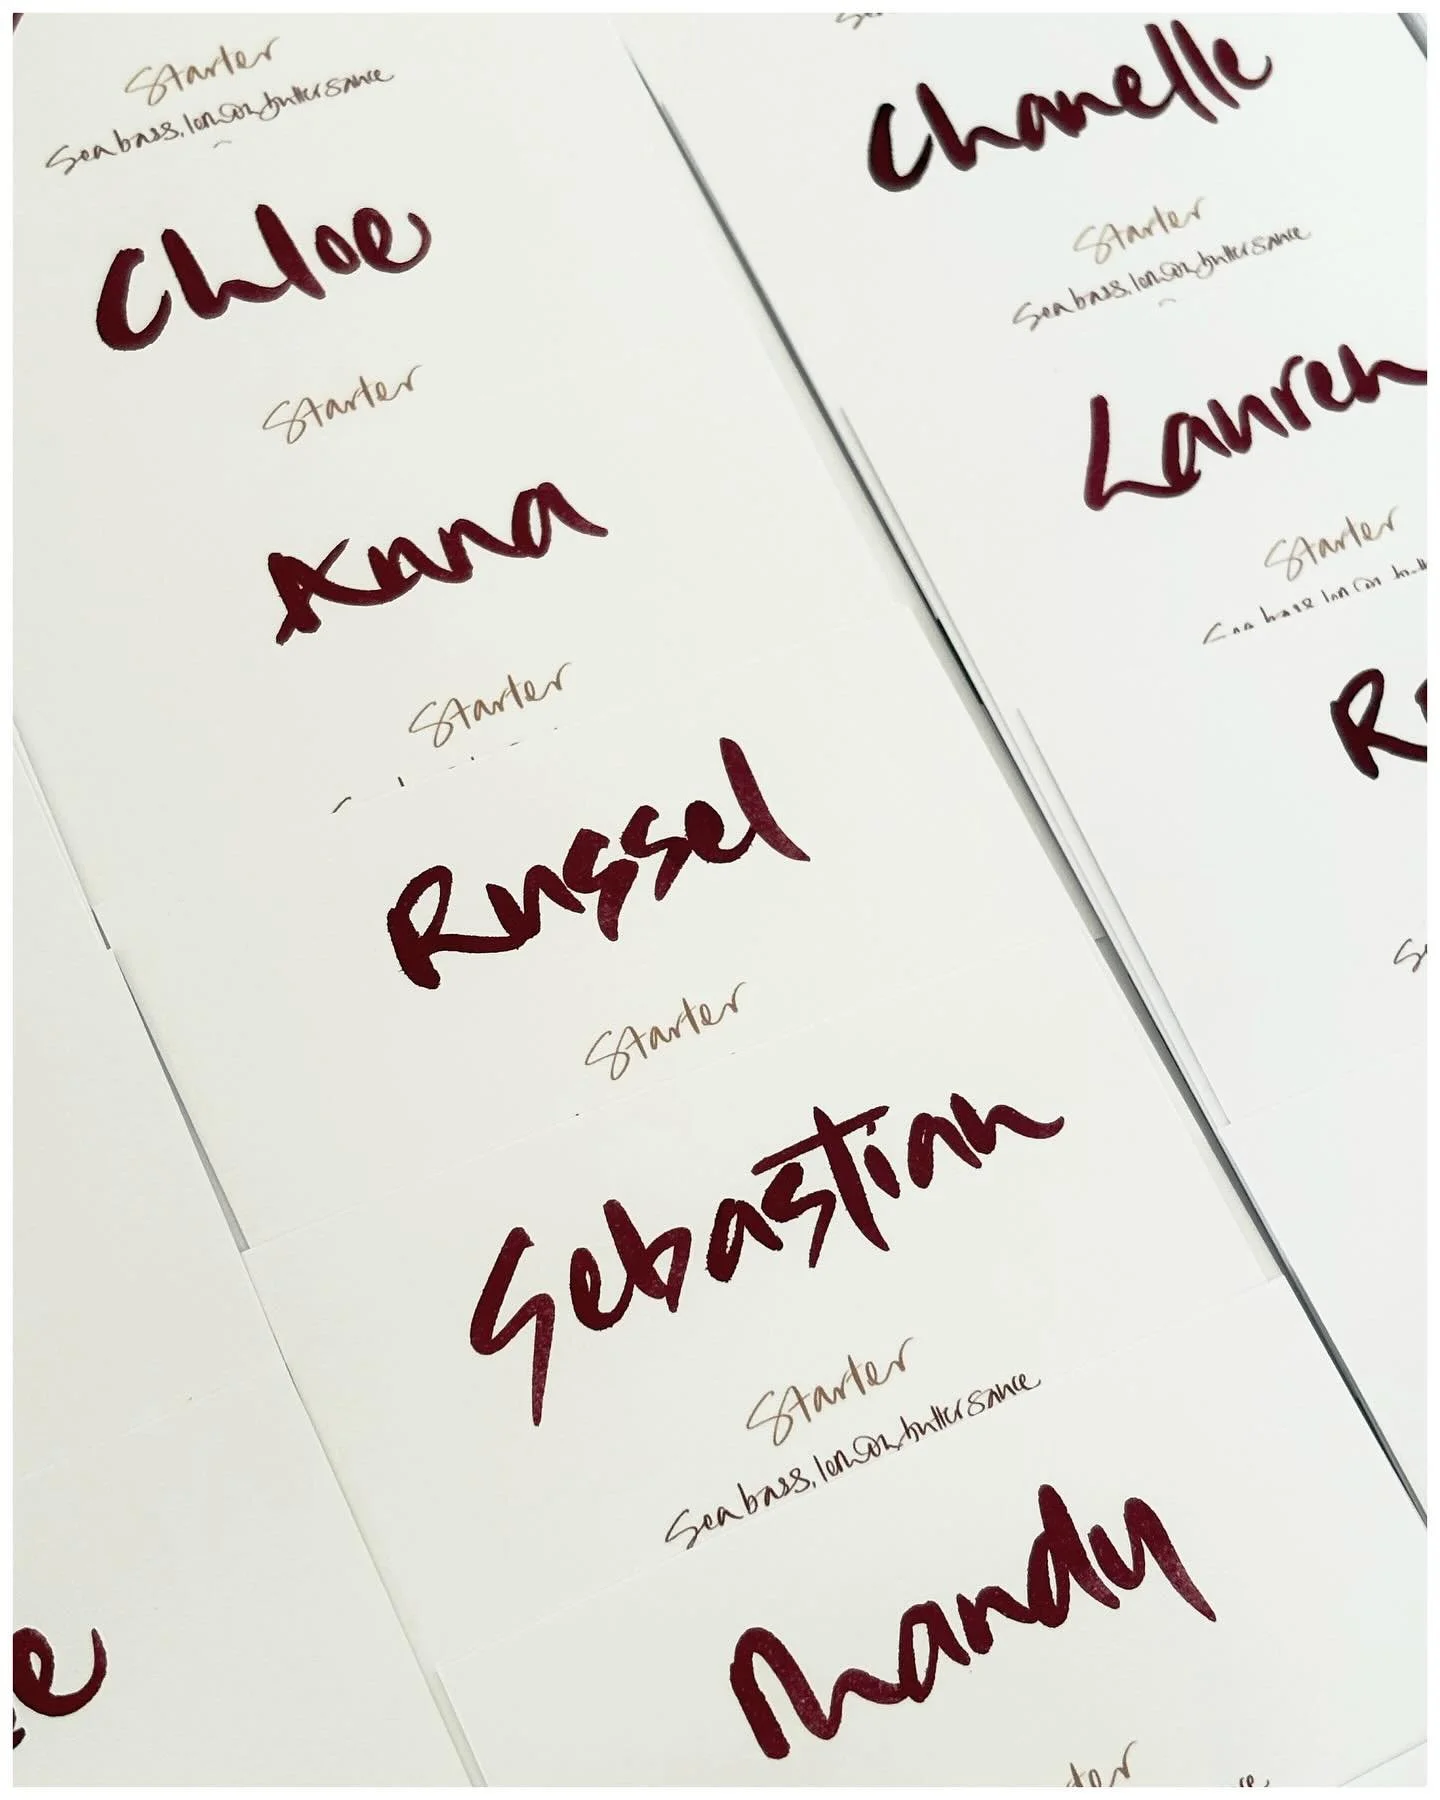 Starter
Seabass, lemon butter sauce
Chloe
Starter
Anna
Starter
Russel
Starter
Sebastian
Starter
Seabass, lemon butter sauce
Mandy
Chanelle
Starter
Seabass, lemon butter sauce
Lauren
Starter